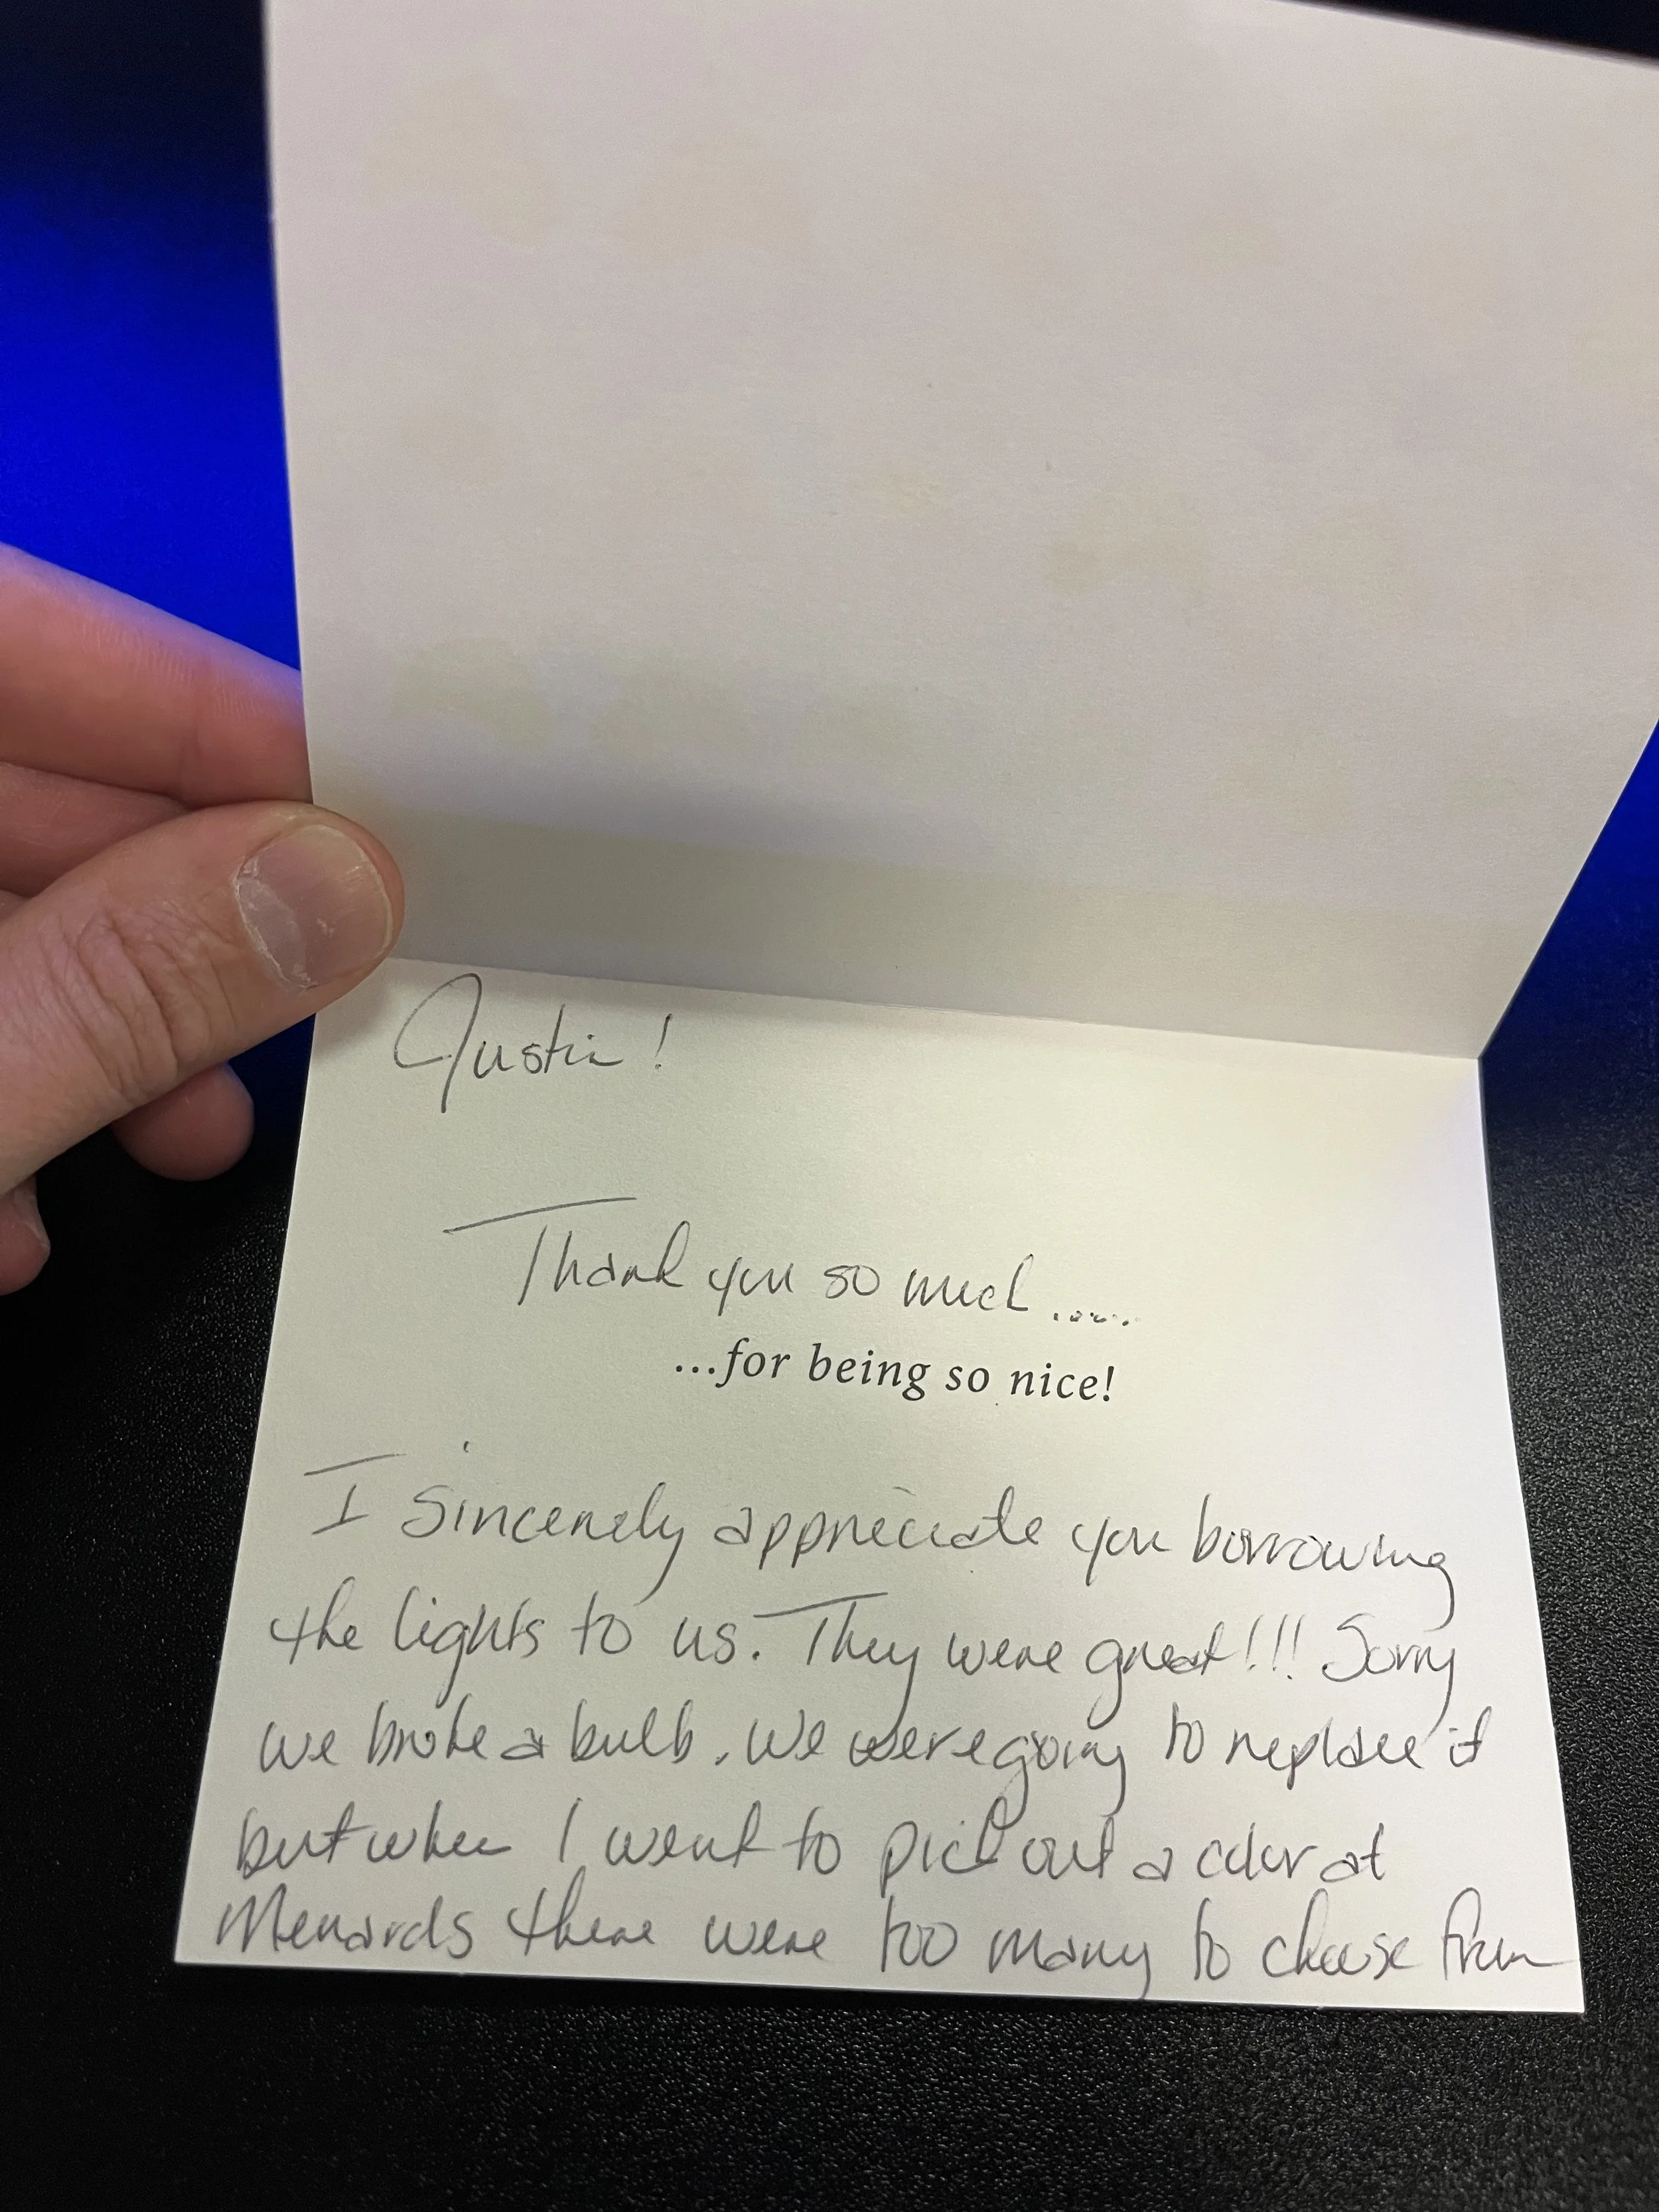 Justin!
Thank you so much .....
...for being so nice!
I sincerely appreciate you borrowing
the lights to us. They were great!!! Sorry
we broke a bulb. We were going to replace it
but when I went to pick out a color at
Menards there were too many to choose from